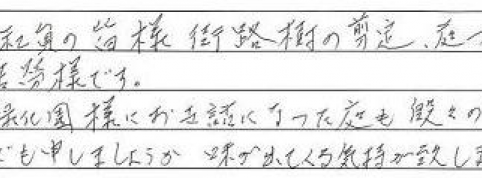 社員の皆様 街路樹の剪定、庭
労様です。
緑化園様にお世話になった庭も段々の
でも申しましょうか 味が出てくる気持が致しま